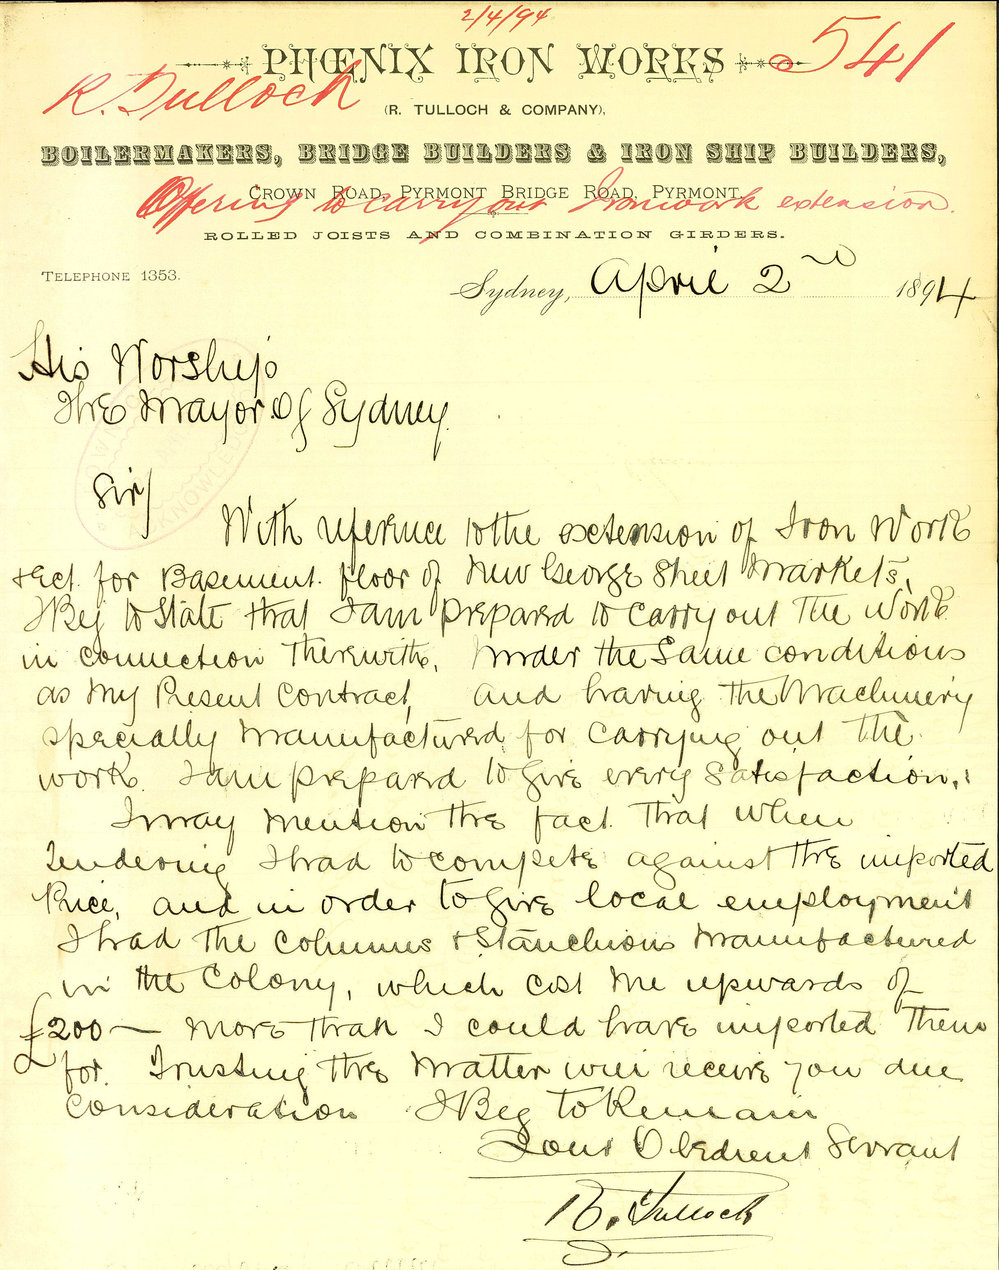 2/4/94
PHŒNIX IRON WORKS
541
R. Tulloch
(R. TULLOCH & COMPANY),
BOILERMAKERS, BRIDGE BUILDERS & IRON SHIP BUILDERS,
CROWN ROAD, PYRMONT BRIDGE ROAD, PYRMONT.
Offering to carry out Ironwork extension.
ROLLED JOISTS AND COMBINATION GIRDERS.
TELEPHONE 1353.
Sydney, April 2nd 1894
His Worship
The Mayor Of Sydney.
ACKNOWLEDGED
Sir/
With reference to the extension of Iron Work
& Ect. for Basement floor of New George Street Markets,
I Beg to State that I am prepared to carry out the Work
in connection therewith, Under the Same conditions
as My Present Contract, and having the Machinery
specially Manufactured for carrying out the
work. I am prepared to give every Satisfaction.
I may Mention the fact that when
tendering I had to compete against the imported
Price, and in order to give local employment
I had the columns & Stanchions Manufactured
in the Colony, which cost Me upwards of
£200 — More than I could have imported them
for. Trusting the Matter will receive you due
consideration I Beg to Remain
Your Obedient Servant
R. Tulloch